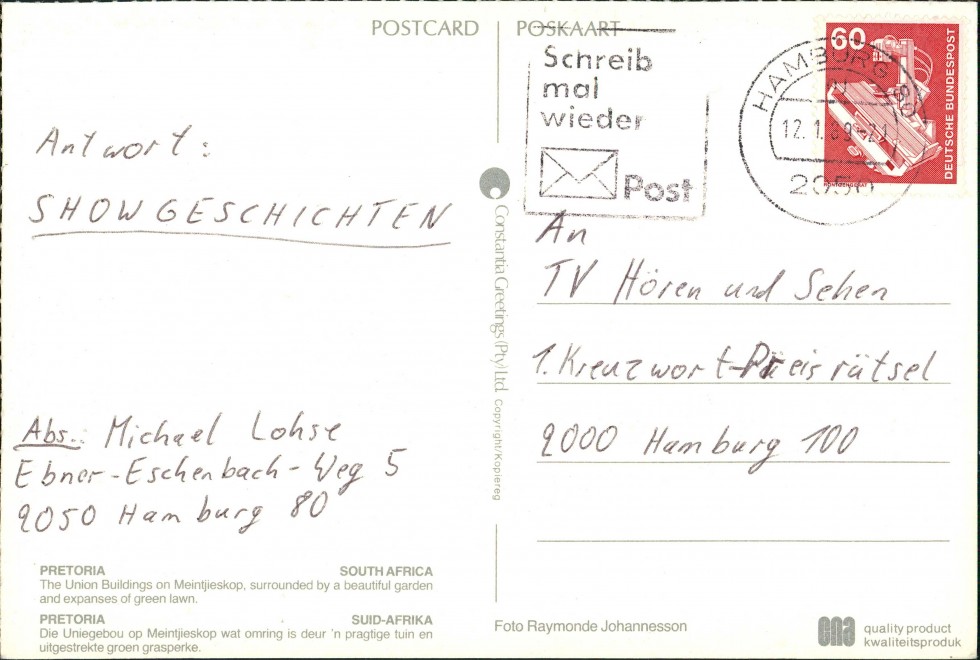 POSTCARD
POSKAART
Schreib
mal
wieder
Post
HAMBURG 80
2050
60
DEUTSCHE BUNDESPOST
RÖNTGENGERÄT
Antwort:
SHOWGESCHICHTEN
Constantia Greetings (Pty) Ltd. Copyright/Kopiereg
An
TV Hören und Sehen
1. Kreuzwort-Preisrätsel
2000 Hamburg 100
Abs.: Michael Lohse
Ebner-Eschenbach-Weg 5
2050 Hamburg 80
PRETORIA SOUTH AFRICA
The Union Buildings on Meintjieskop, surrounded by a beautiful garden
and expanses of green lawn.
PRETORIA SUID-AFRIKA
Die Uniegebou op Meintjieskop wat omring is deur 'n pragtige tuin en
uitgestrekte groen grasperke.
Foto Raymonde Johannesson
ena quality product
kwaliteitsproduk